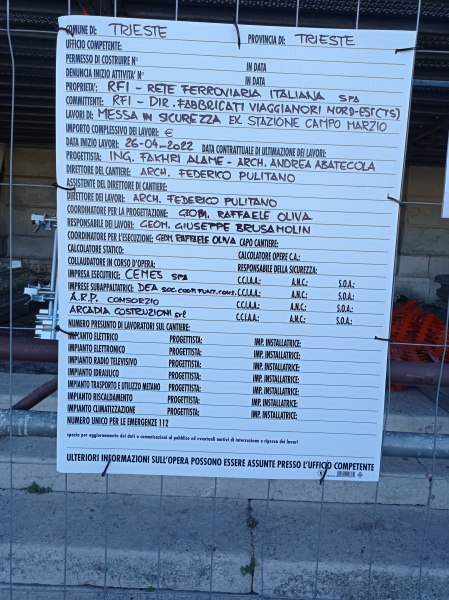 COMUNE DI: TRIESTE PROVINCIA DI: TRIESTE
UFFICIO COMPETENTE:
PERMESSO DI COSTRUIRE N° IN DATA
DENUNCIA INIZIO ATTIVITA' N° IN DATA
PROPRIETA': RFI - RETE FERROVIARIA ITALIANA SPA
COMMITTENTE: RFI - DIR. FABBRICATI VIAGGIANORI NORD-EST (TS)
LAVORI DI: MESSA IN SICUREZZA EX STAZIONE CAMPO MARZIO
IMPORTO COMPLESSIVO DEI LAVORI: €
DATA INIZIO LAVORI: 26-04-2022 DATA CONTRATTUALE DI ULTIMAZIONE DEI LAVORI:
PROGETTISTA: ING. FAKHRI ALAME - ARCH. ANDREA ABATECOLA
DIRETTORE DEL CANTIERE: ARCH. FEDERICO PULITANO
ASSISTENTE DEL DIRETTORE DI CANTIERE:
DIRETTORE DEI LAVORI: ARCH. FEDERICO PULITANO
COORDINATORE PER LA PROGETTAZIONE: GEOM. RAFFAELE OLIVA
RESPONSABILE DEI LAVORI: GEOM. GIUSEPPE BRUSAMOLIN
COORDINATORE PER L'ESECUZIONE: GEOM. RAFFAELE OLIVA CAPO CANTIERE:
CALCOLATORE STATICO: CALCOLATORE OPERE C.A.:
COLLAUDATORE IN CORSO D'OPERA: RESPONSABILE DELLA SICUREZZA:
IMPRESA ESECUTRICE: CEMES SPA C.C.I.A.A.: A.N.C.: S.O.A.:
IMPRESE SUBAPPALTATRICI: DEA SOC. COOP. FUNT. CONS. C.C.I.A.A.: A.N.C.: S.O.A.:
A.R.P. CONSORZIO C.C.I.A.A.: A.N.C.: S.O.A.:
ARCADIA COSTRUZIONI srl C.C.I.A.A.: A.N.C.: S.O.A.:
NUMERO PRESUNTO DI LAVORATORI SUL CANTIERE:
IMPIANTO ELETTRICO PROGETTISTA: IMP. INSTALLATRICE:
IMPIANTO ELETTRONICO PROGETTISTA: IMP. INSTALLATRICE:
IMPIANTO RADIO TELEVISIVO PROGETTISTA: IMP. INSTALLATRICE:
IMPIANTO IDRAULICO PROGETTISTA: IMP. INSTALLATRICE:
IMPIANTO TRASPORTO E UTILIZZO METANO PROGETTISTA: IMP. INSTALLATRICE:
IMPIANTO RISCALDAMENTO PROGETTISTA: IMP. INSTALLATRICE:
IMPIANTO CLIMATIZZAZIONE PROGETTISTA: IMP. INSTALLATRICE:
NUMERO UNICO PER LE EMERGENZE 112
spazio per aggiornamento dei dati o comunicazioni al pubblico ed eventuali motivi di interruzione e ripresa dei lavori
ULTERIORI INFORMAZIONI SULL'OPERA POSSONO ESSERE ASSUNTE PRESSO L'UFFICIO COMPETENTE